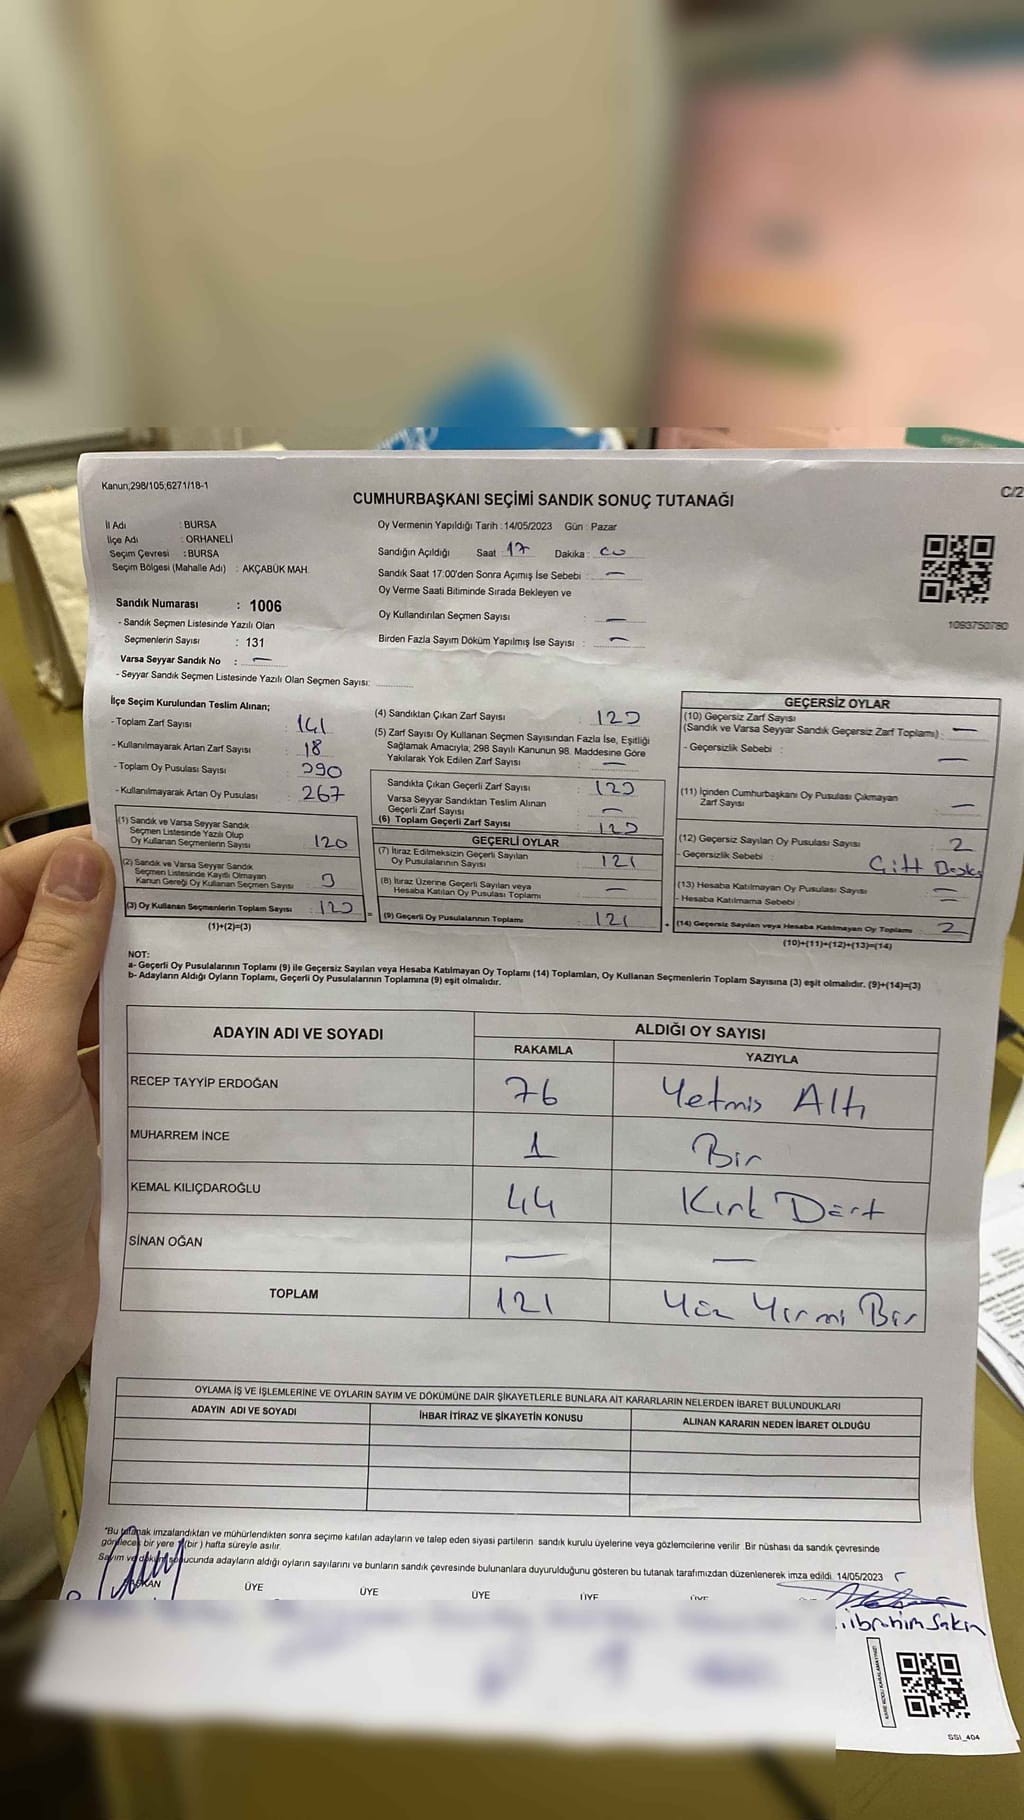 Kanun;298/105;6271/18-1
C/2
CUMHURBAŞKANI SEÇİMİ SANDIK SONUÇ TUTANAĞI
İl Adı : BURSA
İlçe Adı : ORHANELİ
Seçim Çevresi : BURSA
Seçim Bölgesi (Mahalle Adı) : AKÇABÜK MAH.
Sandık Numarası : 1006
- Sandık Seçmen Listesinde Yazılı Olan
Seçmenlerin Sayısı : 131
Varsa Seyyar Sandık No : —
- Seyyar Sandık Seçmen Listesinde Yazılı Olan Seçmen Sayısı:
Oy Vermenin Yapıldığı Tarih : 14/05/2023 Gün : Pazar
Sandığın Açıldığı Saat : 17 Dakika :
Sandık Saat 17:00'den Sonra Açımış İse Sebebi : —
Oy Verme Saati Bitiminde Sırada Bekleyen ve
Oy Kullandırılan Seçmen Sayısı : —
Birden Fazla Sayım Döküm Yapılmış İse Sayısı : —
1093750780
İlçe Seçim Kurulundan Teslim Alınan;
- Toplam Zarf Sayısı : 141
- Kullanılmayarak Artan Zarf Sayısı : 18
- Toplam Oy Pusulası Sayısı : 390
- Kullanılmayarak Artan Oy Pusulası : 267
(1) Sandık ve Varsa Seyyar Sandık
Seçmen Listesinde Yazılı Olup
Oy Kullanan Seçmenlerin Sayısı : 120
(2) Sandık ve Varsa Seyyar Sandık
Seçmen Listesinde Kayıtlı Olmayan
Kanun Gereği Oy Kullanan Seçmen Sayısı : 3
(3) Oy Kullanan Seçmenlerin Toplam Sayısı : 123
(1)+(2)=(3)
(4) Sandıktan Çıkan Zarf Sayısı : 123
(5) Zarf Sayısı Oy Kullanan Seçmen Sayısından Fazla İse, Eşitliği
Sağlamak Amacıyla; 298 Sayılı Kanunun 98. Maddesine Göre
Yakılarak Yok Edilen Zarf Sayısı : —
Sandıkta Çıkan Geçerli Zarf Sayısı : 123
Varsa Seyyar Sandıktan Teslim Alınan
Geçerli Zarf Sayısı : —
(6) Toplam Geçerli Zarf Sayısı : 123
GEÇERLİ OYLAR
(7) İtiraz Edilmeksizin Geçerli Sayılan
Oy Pusulalarının Sayısı : 121
(8) İtiraz Üzerine Geçerli Sayılan veya
Hesaba Katılan Oy Pusulası Toplamı : —
(9) Geçerli Oy Pusulalarının Toplamı : 121
GEÇERSİZ OYLAR
(10) Geçersiz Zarf Sayısı
(Sandık ve Varsa Seyyar Sandık Geçersiz Zarf Toplamı) : —
- Geçersizlik Sebebi : —
(11) İçinden Cumhurbaşkanı Oy Pusulası Çıkmayan
Zarf Sayısı : —
(12) Geçersiz Sayılan Oy Pusulası Sayısı : 2
- Geçersizlik Sebebi : Çift
(13) Hesaba Katılmayan Oy Pusulası Sayısı : —
- Hesaba Katılmama Sebebi : —
(14) Geçersiz Sayılan veya Hesaba Katılmayan Oy Toplamı : 2
(10)+(11)+(12)+(13)=(14)
NOT:
a- Geçerli Oy Pusulalarının Toplamı (9) ile Geçersiz Sayılan veya Hesaba Katılmayan Oy Toplamı (14) Toplamları, Oy Kullanan Seçmenlerin Toplam Sayısına (3) eşit olmalıdır. (9)+(14)=(3)
b- Adayların Aldığı Oyların Toplamı, Geçerli Oy Pusulalarının Toplamına (9) eşit olmalıdır.
ADAYIN ADI VE SOYADI ALDIĞI OY SAYISI
RAKAMLA YAZIYLA
RECEP TAYYİP ERDOĞAN 76 Yetmiş Altı
MUHARREM İNCE 1 Bir
KEMAL KILIÇDAROĞLU 44 Kırk Dört
SİNAN OĞAN — —
TOPLAM 121 Yüz Yirmi Bir
OYLAMA İŞ VE İŞLEMLERİNE VE OYLARIN SAYIM VE DÖKÜMÜNE DAİR ŞİKAYETLERLE BUNLARA AİT KARARLARIN NELERDEN İBARET BULUNDUKLARI
ADAYIN ADI VE SOYADI İHBAR İTİRAZ VE ŞİKAYETİN KONUSU ALINAN KARARIN NEDEN İBARET OLDUĞU
"Bu tutanak imzalandıktan ve mühürlendikten sonra seçime katılan adayların ve talep eden siyasi partilerin sandık kurulu üyelerine veya gözlemcilerine verilir. Bir nüshası da sandık çevresinde
görülecek bir yere 1 (bir) hafta süreyle asılır.
Sayım ve döküm sonucunda adayların aldığı oyların sayılarını ve bunların sandık çevresinde bulunanlara duyurulduğunu gösteren bu tutanak tarafımızdan düzenlenerek imza edildi. 14/05/2023
BAŞKAN ÜYE ÜYE ÜYE ÜYE ÜYE
ibrahim Sakin
SSI_404